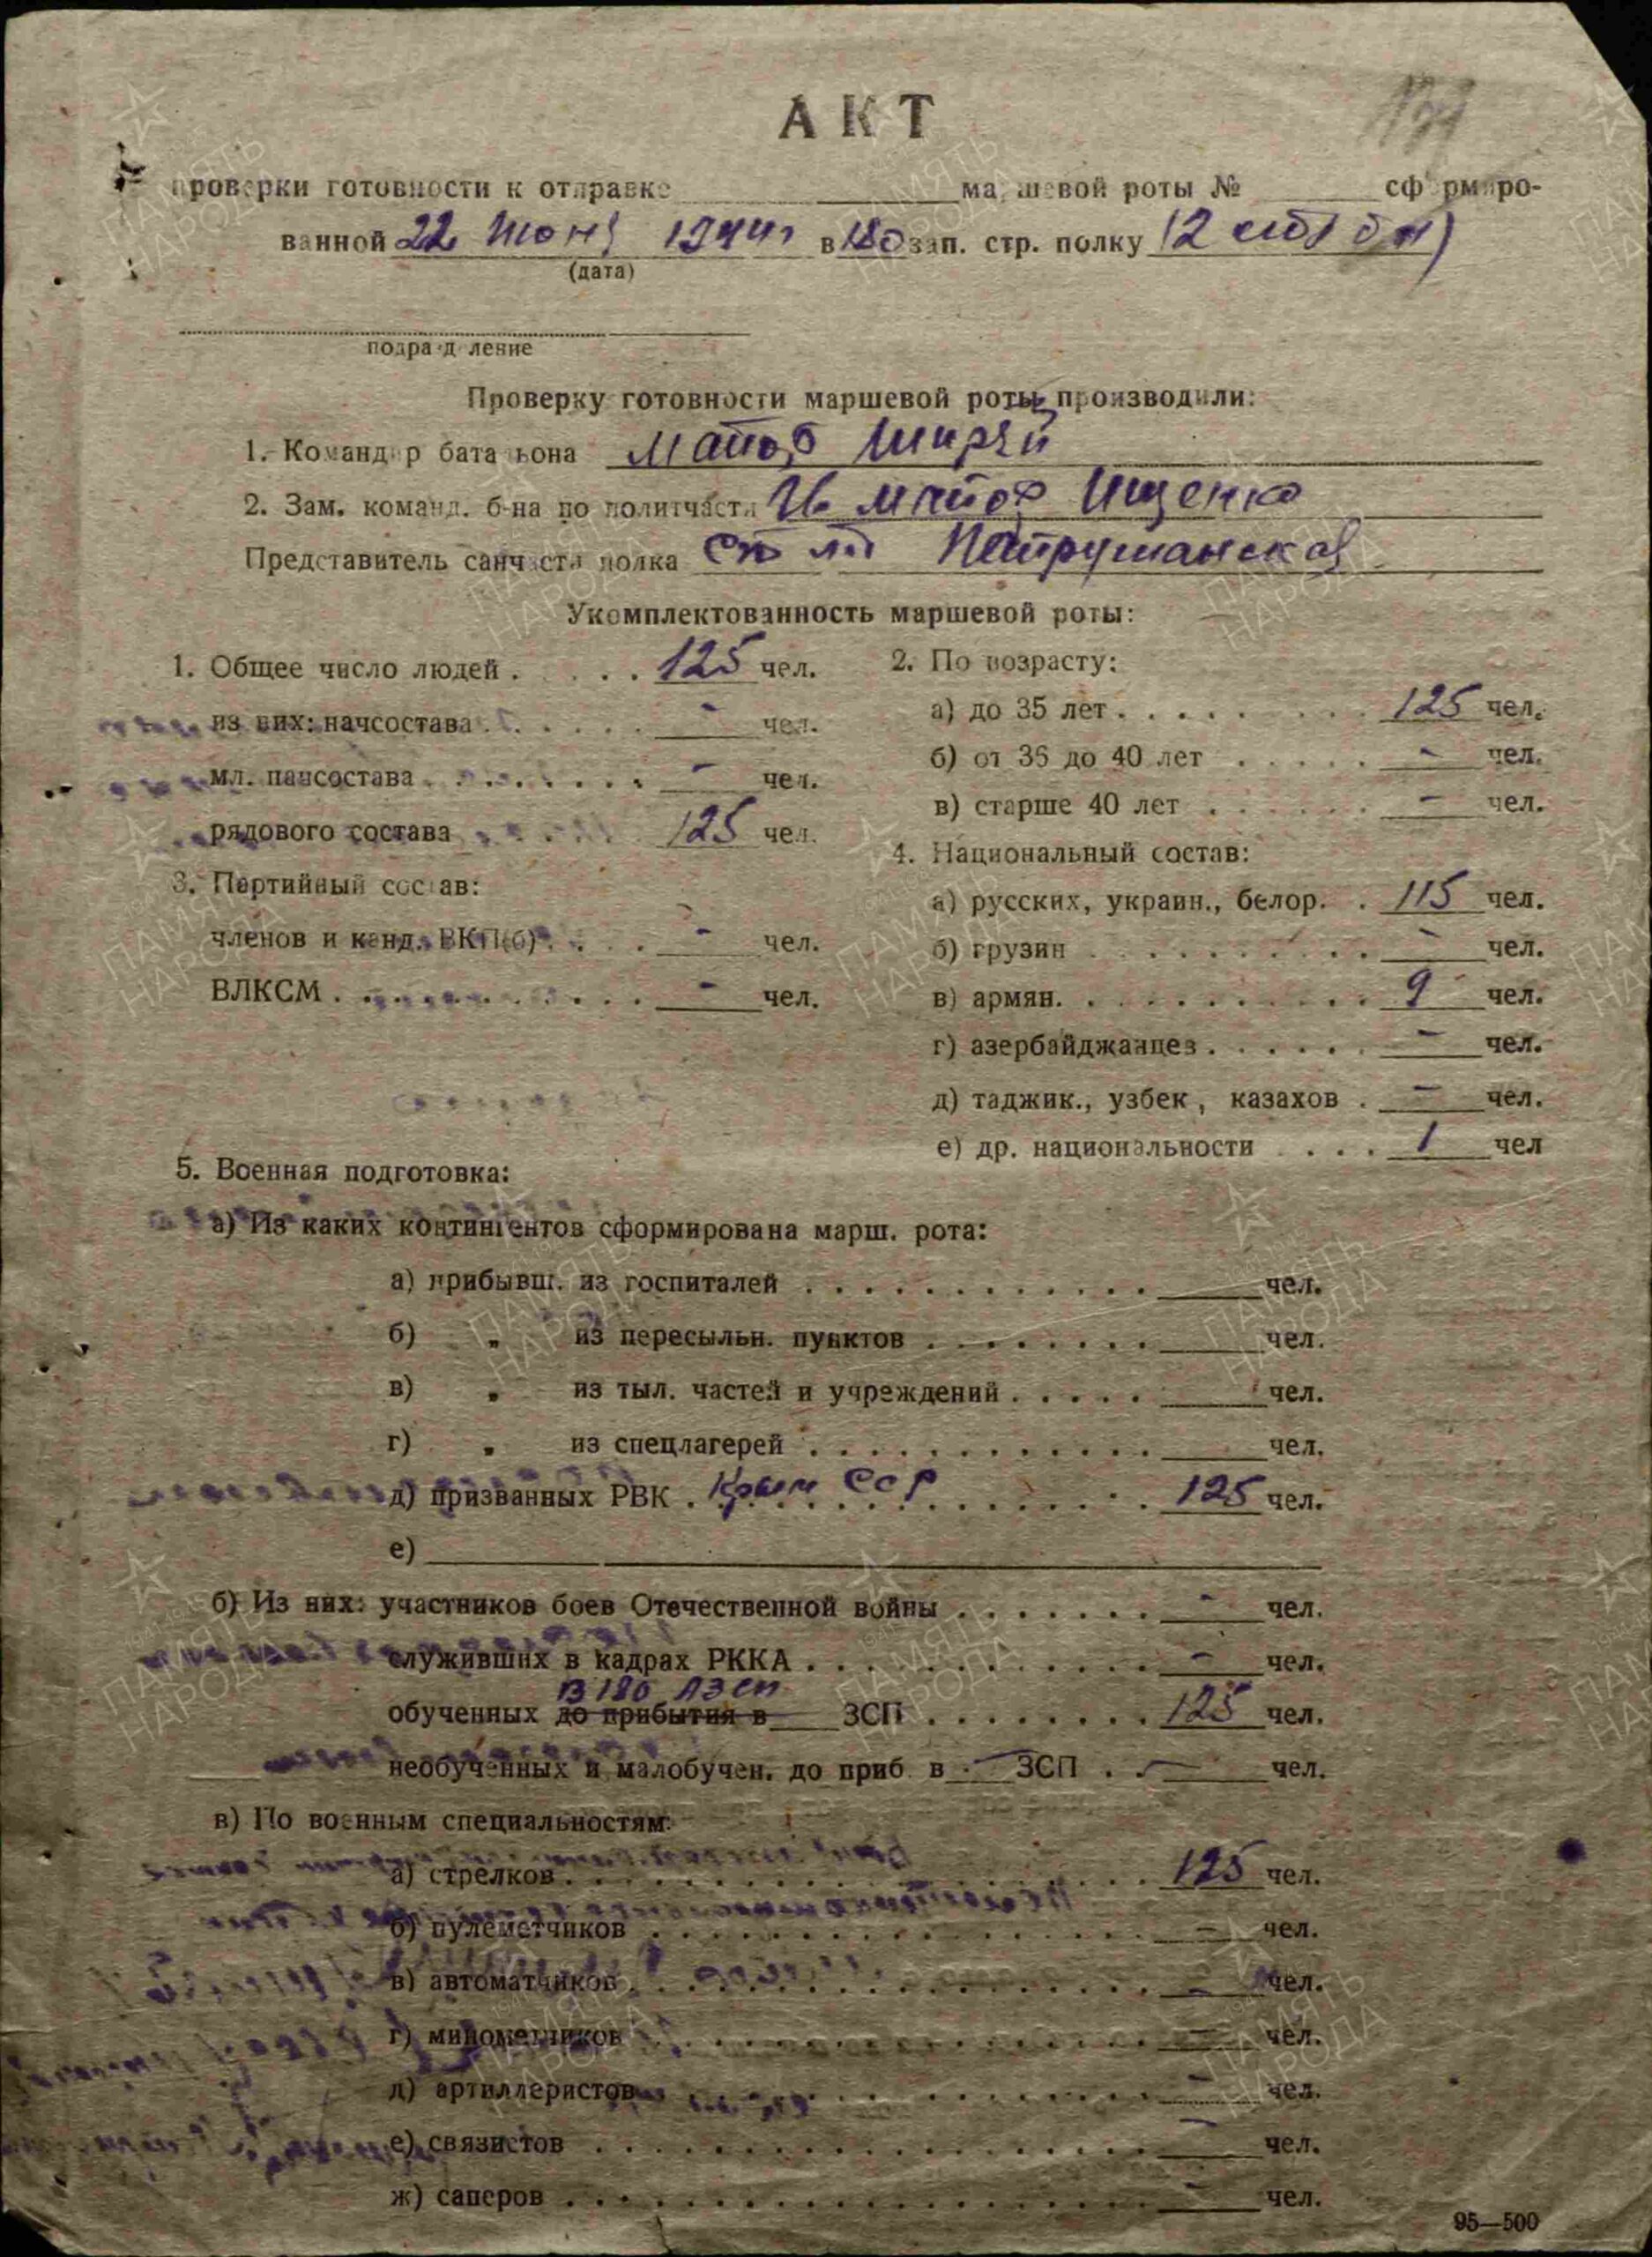 АКТ
проверки готовности к отправке маршевой роты № сформиро-
ванной 22 июня 1944г в 180 зап. стр. полку (2 стр бн)
(дата)
подразделение
Проверку готовности маршевой роты производили:
1. Командир батальона майор Ширяй
2. Зам. команд. б-на по политчасти Гв майор Ищенко
Представитель санчасти полка ст л-т Петрушанская
Укомплектованность маршевой роты:
1. Общее число людей . . . . . 125 чел.
из них: начсостава . . . . . - чел.
мл. начсостава . . . . . . . - чел.
рядового состава 125 чел.
2. По возрасту:
а) до 35 лет . . . . . . . 125 чел.
б) от 36 до 40 лет . . . . . - чел.
в) старше 40 лет . . . . . - чел.
3. Партийный состав:
членов и канд. ВКП(б) . . . . - чел.
ВЛКСМ . . . . . . . . . . . - чел.
4. Национальный состав:
а) русских, украин., белор. . 115 чел.
б) грузин . . . . . . . . . - чел.
в) армян. . . . . . . . . . . 9 чел.
г) азербайджанцев . . . . . . - чел.
д) таджик., узбек, казахов . - чел.
е) др. национальности . . . . 1 чел
5. Военная подготовка:
а) Из каких контингентов сформирована марш. рота:
а) прибывш. из госпиталей . . . . . . . . . . . . чел.
б) " из пересыльн. пунктов . . . . . . . . чел.
в) " из тыл. частей и учреждений . . . . . чел.
г) " из спецлагерей . . . . . . . . . . . . чел.
д) призванных РВК . Крым ССР . . . . 125 чел.
е)
б) Из них: участников боев Отечественной войны . . . . . . . - чел.
служивших в кадрах РККА . . . . . . . . . . . . - чел.
в 180 АЗСП
обученных до прибытия в ЗСП . . . . . . . . 125 чел.
необученных и малобучен. до приб. в - ЗСП . . - чел.
в) По военным специальностям:
а) стрелков . . . . . . . . . . . . . . . . . . 125 чел.
б) пулеметчиков . . . . . . . . . . . . . . . . - чел.
в) автоматчиков . . . . . . . . . . . . . . . . - чел.
г) минометчиков . . . . . . . . . . . . . . . . - чел.
д) артиллеристов . . . . . . . . . . . . . . . - чел.
е) связистов . . . . . . . . . . . . . . . . . . - чел.
ж) саперов . . . . . . . . . . . . . . . . . . . - чел.
95—500
ПАМЯТЬ НАРОДА